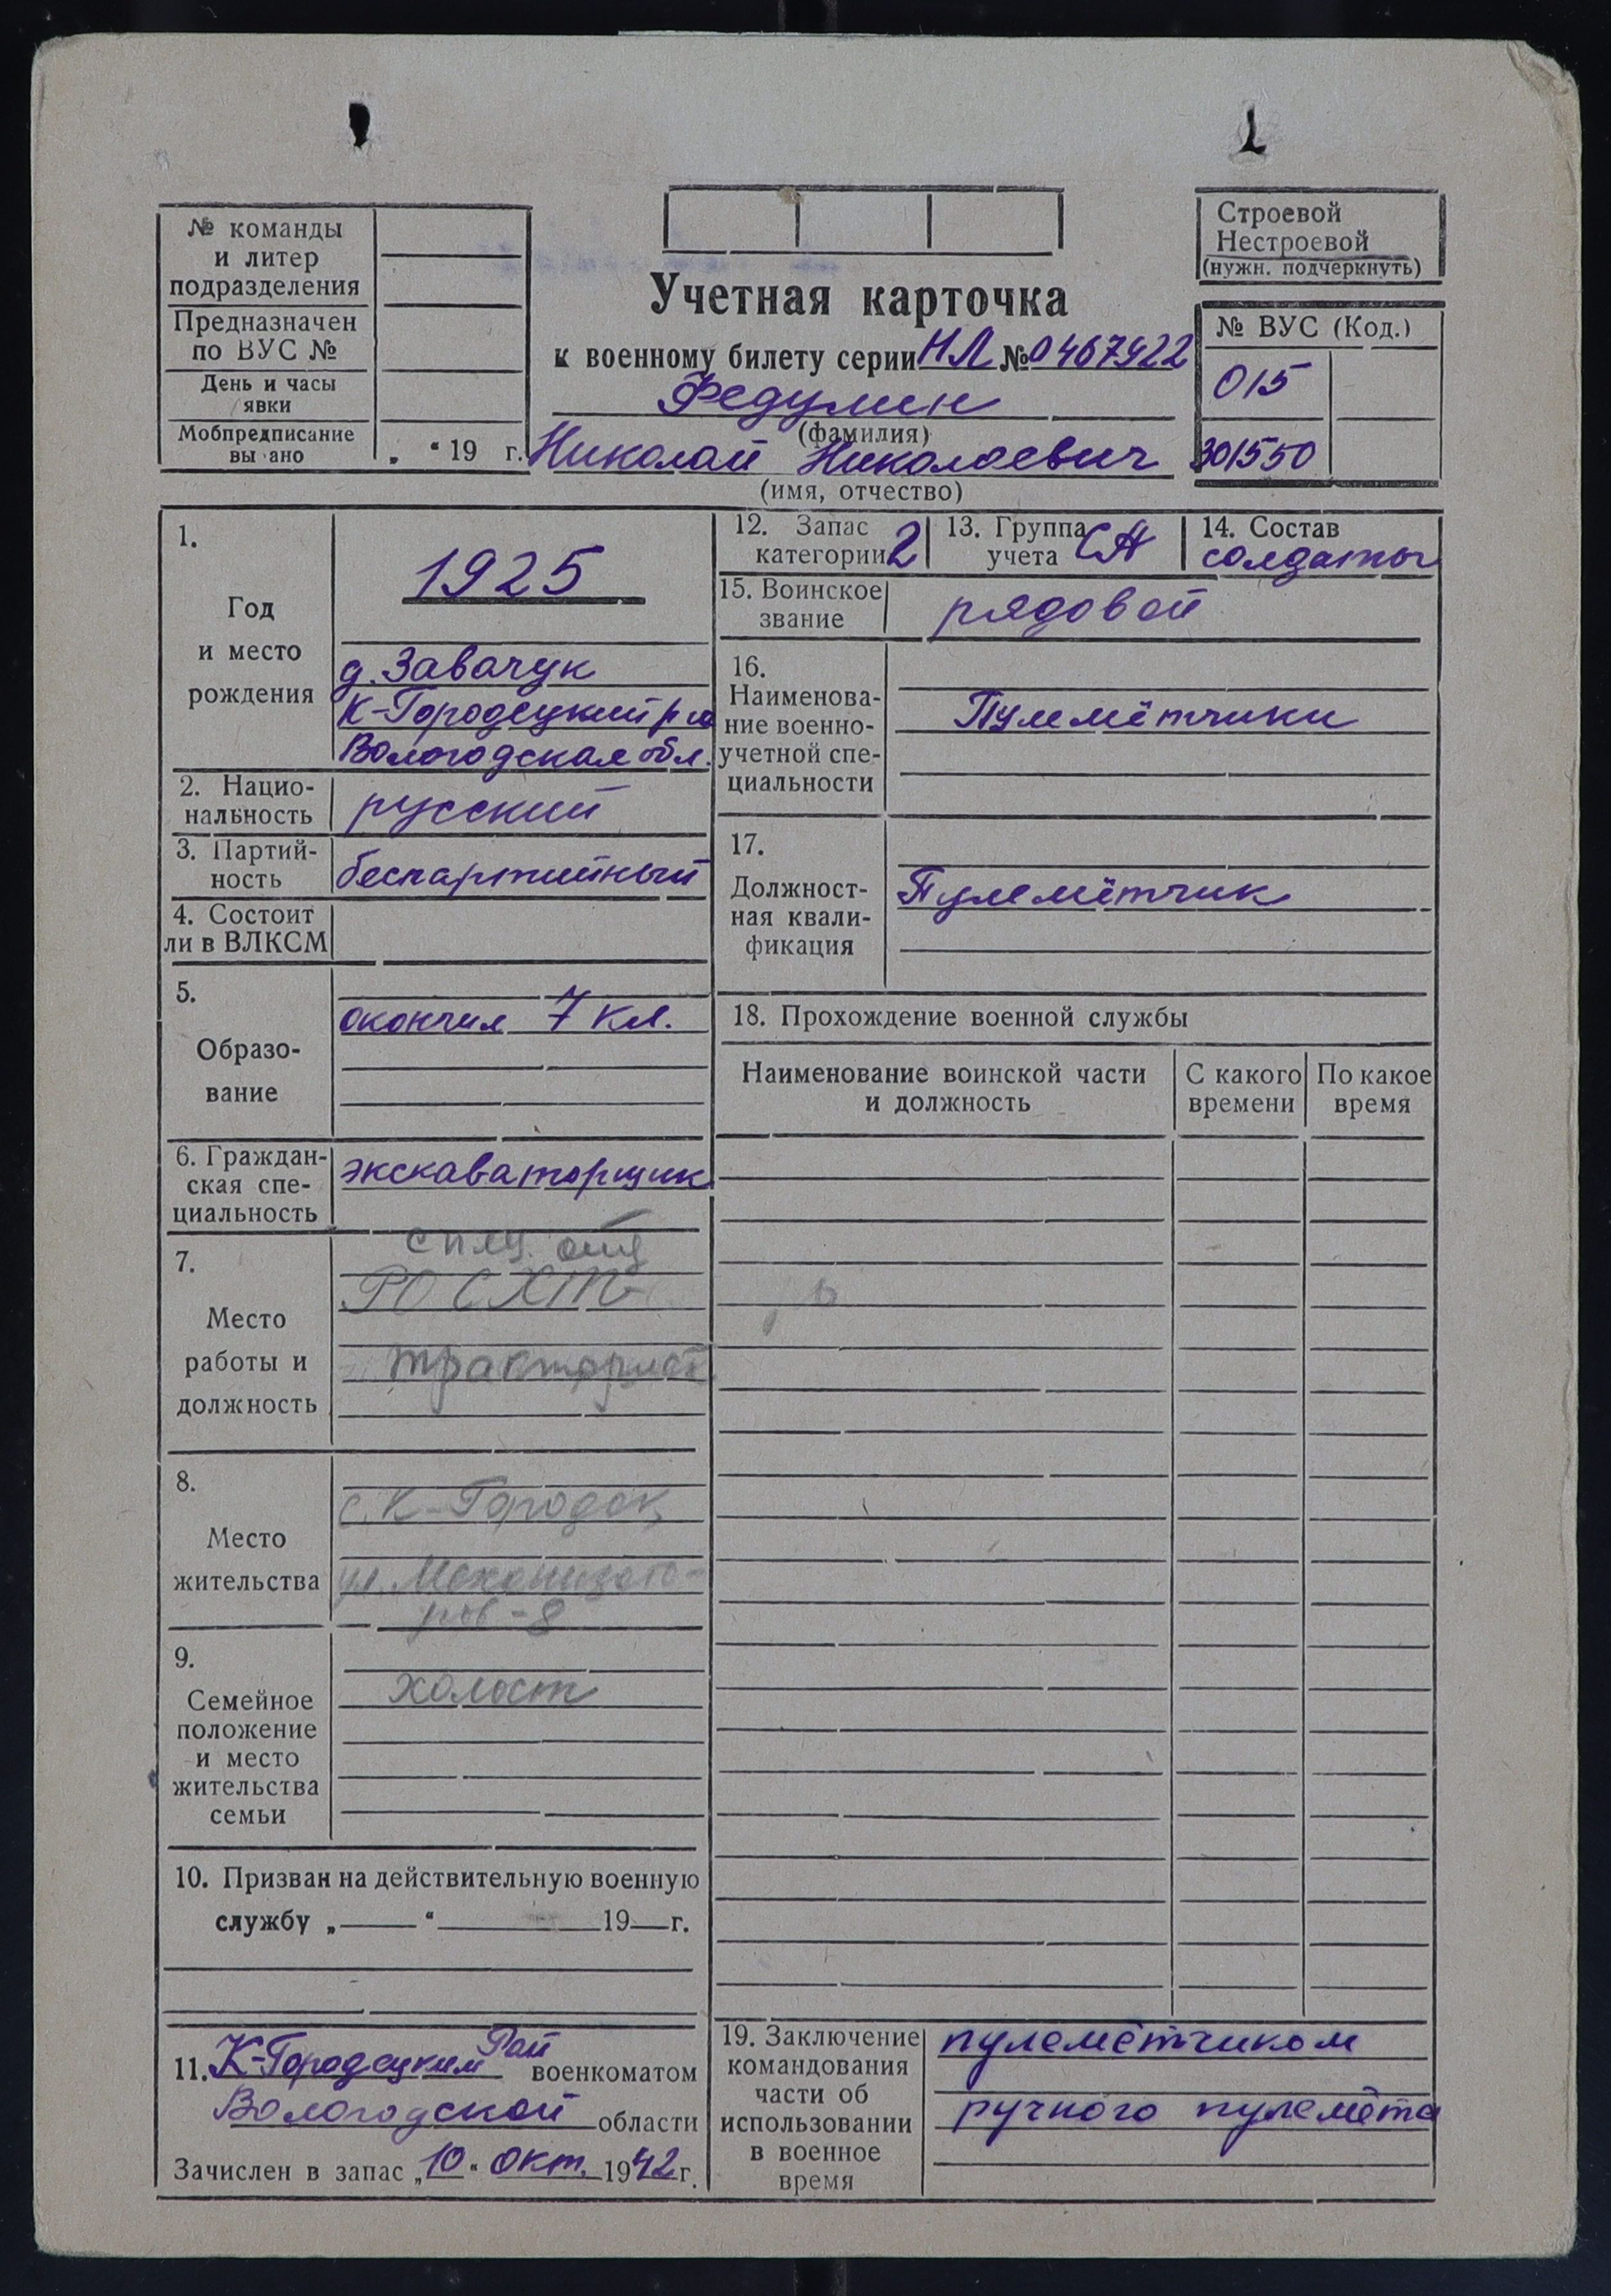 № команды
и литер
подразделения
Предназначен
по ВУС №
День и часы
явки
Мобпредписание
вы ано
„ “ 19 г.
Учетная карточка
к военному билету серии НЛ № 0467922
Федулин
(фамилия)
Николай Николаевич
(имя, отчество)
Строевой
Нестроевой
(нужн. подчеркнуть)
№ ВУС (Код.)
015
301550
1.
Год
и место
рождения
1925
д. Завачук
К-Городецкий р-н
Вологодская обл.
2. Нацио-
нальность
русский
3. Партий-
ность
беспартийный
4. Состоит
ли в ВЛКСМ
5.
Образо-
вание
окончил 7 кл.
6. Граждан-
ская спе-
циальность
экскаваторщик
7.
Место
работы и
должность
РОСХТ
тракторист
8.
Место
жительства
с. К-Городок
ул. Механизато-
ров-8
9.
Семейное
положение
и место
жительства
семьи
холост
10. Призван на действительную военную
службу „ “ 19 г.
11. К-Городецким Рай военкоматом
Вологодской области
Зачислен в запас „10“ окт. 1942 г.
12. Запас
категории 2
13. Группа
учета СА
14. Состав
солдаты
15. Воинское
звание
рядовой
16.
Наименова-
ние военно-
учетной спе-
циальности
Пулемётчики
17.
Должност-
ная квали-
фикация
Пулемётчик
18. Прохождение военной службы
Наименование воинской части
и должность
С какого
времени
По какое
время
19. Заключение
командования
части об
использовании
в военное
время
пулемётчиком
ручного пулемёта